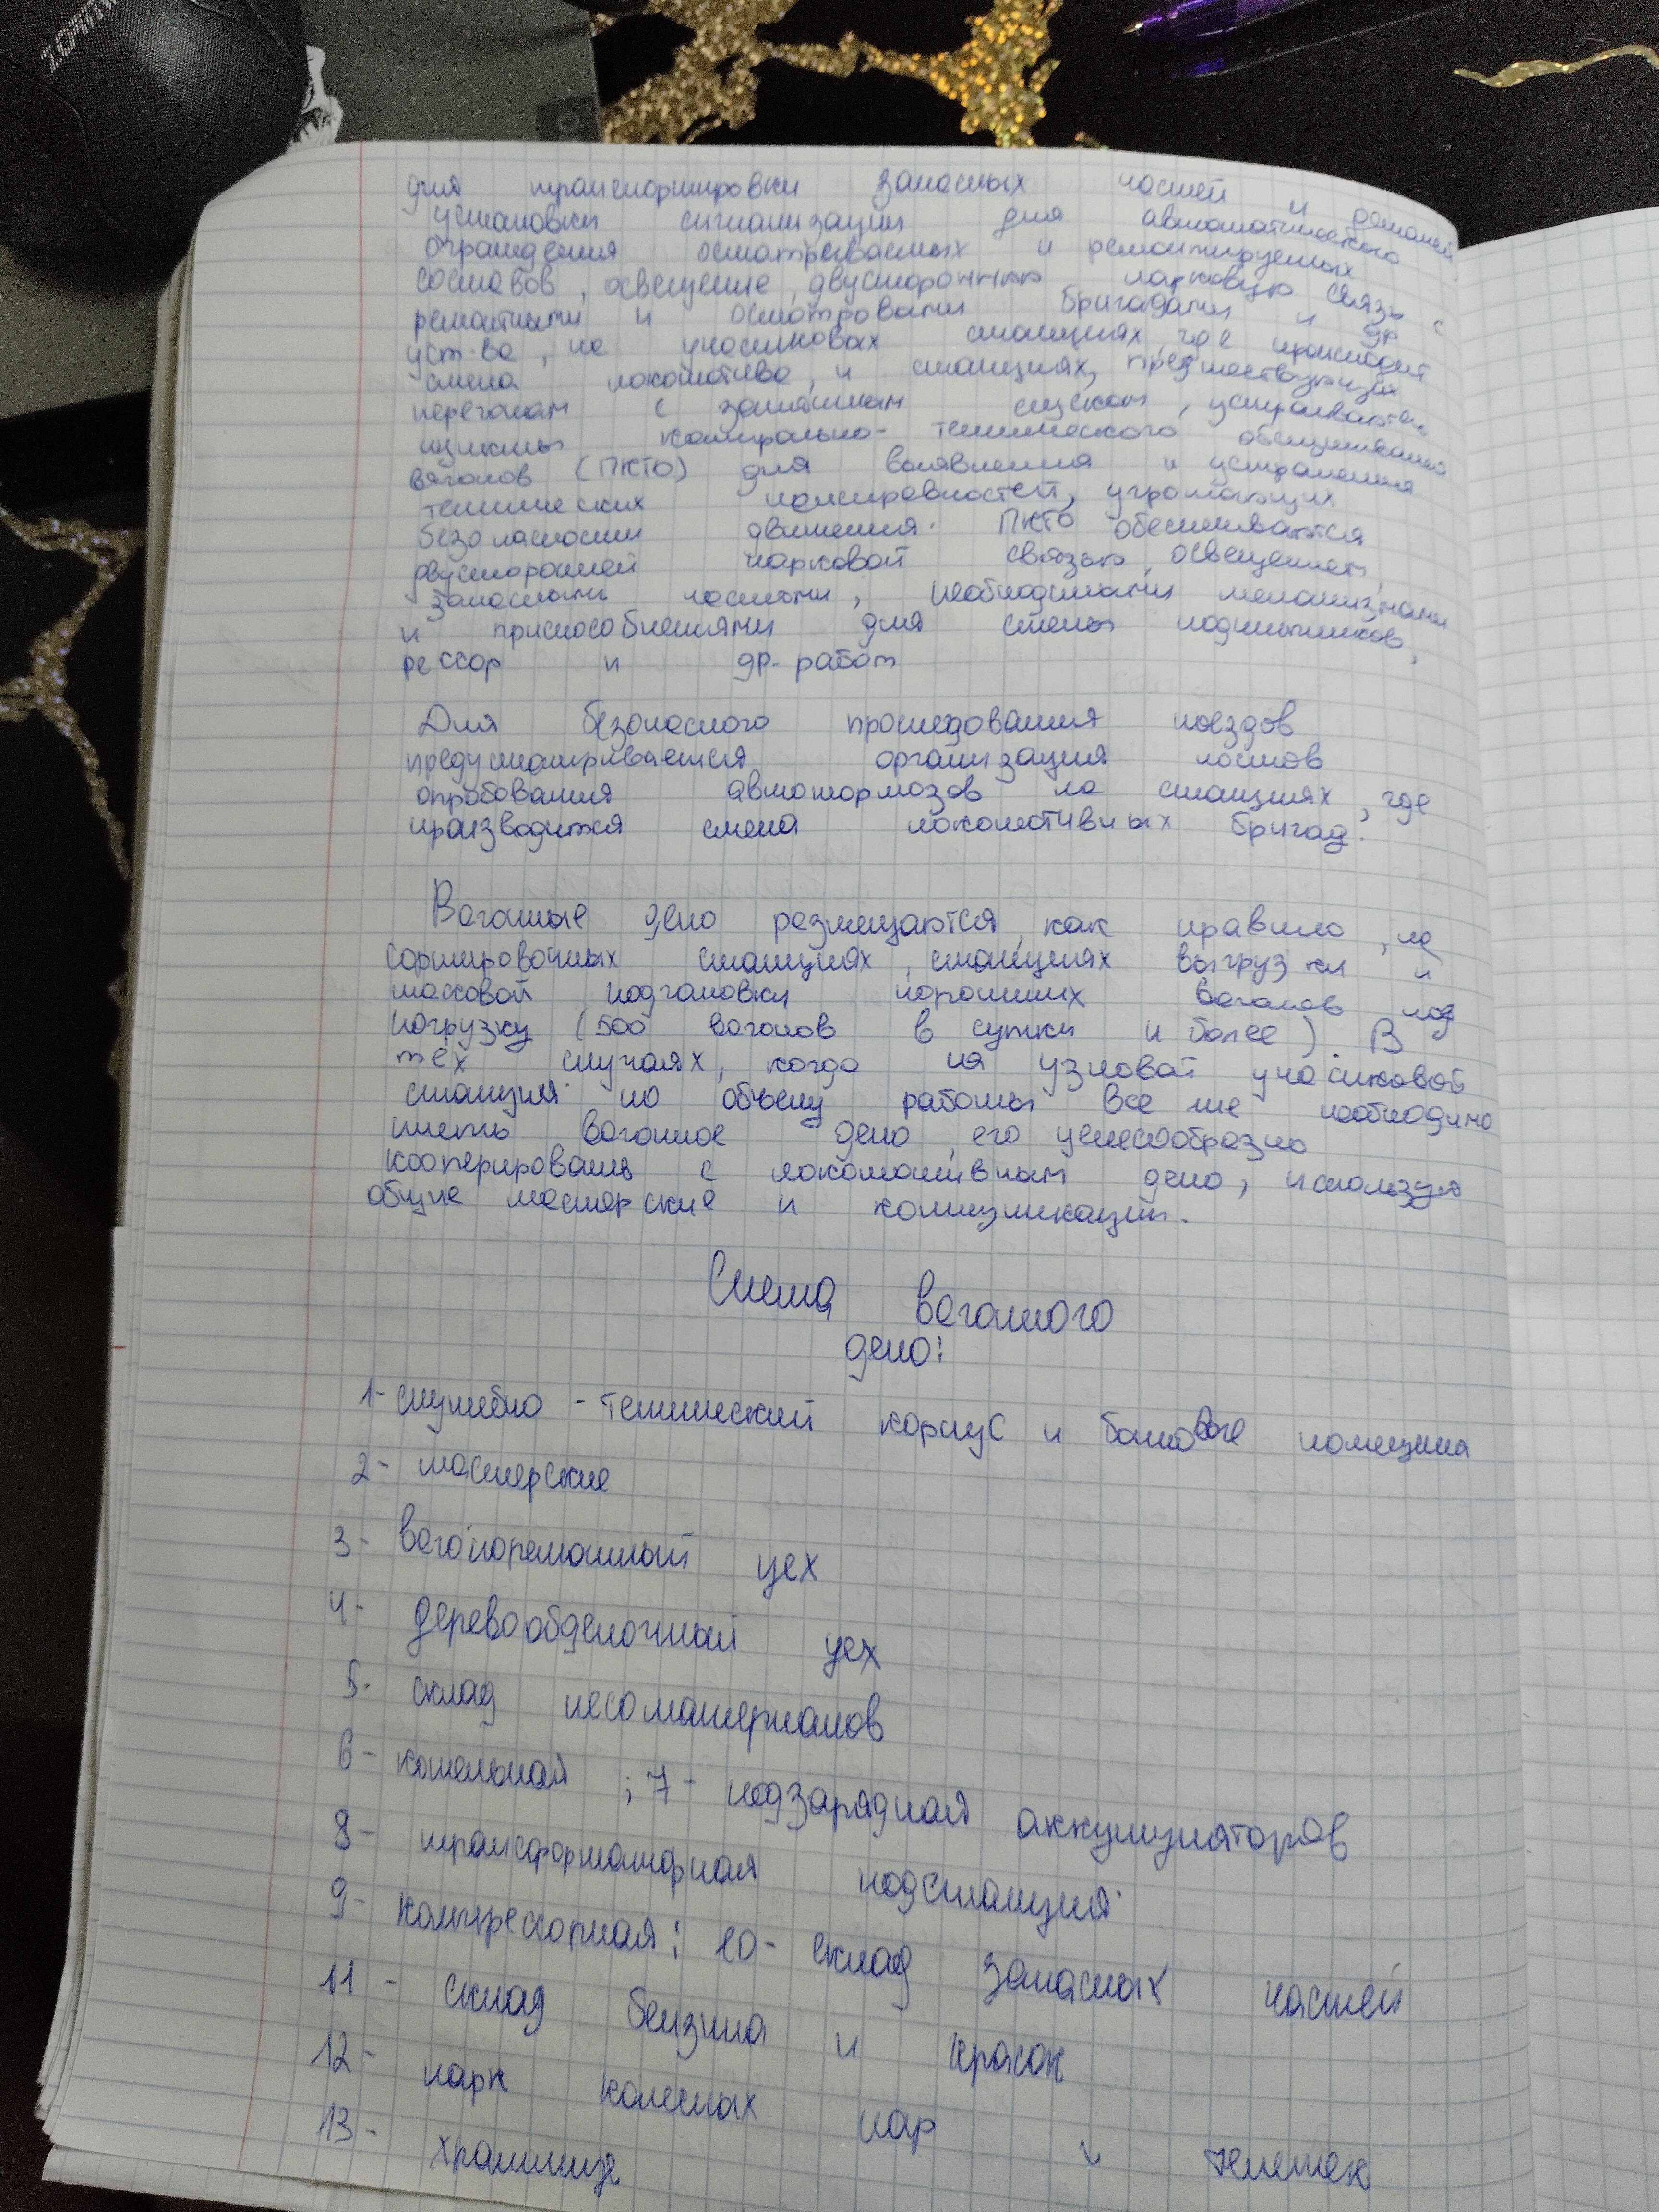 ZOMBI
для транспортировки запасных частей и деталей,
установки сигнализации для автоматического
ограждения осматриваемых и ремонтируемых
составов, освещение, двустороннюю парковую связь с
ремонтными и осмотровыми бригадами и др.
уст-ва, на участковых станциях, где происходит
смена локомотива, и станциях, предшествующих
перегонам с затяжным спуском, устраиваются
пункты контрольно-технического обслуживания
вагонов (ПКТО) для выявления и устранения
технических неисправностей, угрожающих
безопасности движения. ПКТО обеспечиваются
двусторонней парковой связью, освещением,
запасными частями, необходимыми механизмами
и приспособлениями для смены подшипников,
рессор и др. работ
Для безопасного проследования поездов
предусматривается организация постов
опробования автотормозов на станциях, где
производится смена локомотивных бригад.
Вагонные депо размещаются, как правило, на
сортировочных станциях, станциях выгрузки и
массовой подготовки порожних вагонов под
погрузку (500 вагонов в сутки и более). В
тех случаях, когда на узловой участковой
станции по объему работы все же необходимо
иметь вагонное депо, его целесообразно
кооперировать с локомотивным депо, используя
общие мастерские и коммуникации.
Схема вагонного
депо:
1- служебно-технический корпус и бытовые помещения
2- мастерские
3- вагоноремонтный цех
4- деревообделочный цех
5- склад лесоматериалов
6- котельная; 7- подзарядная аккумуляторов
8- трансформаторная подстанция
9- компрессорная; 10- склад запасных частей
11- склад бензина и красок
12- парк колесных пар и тележек
13- хранилище